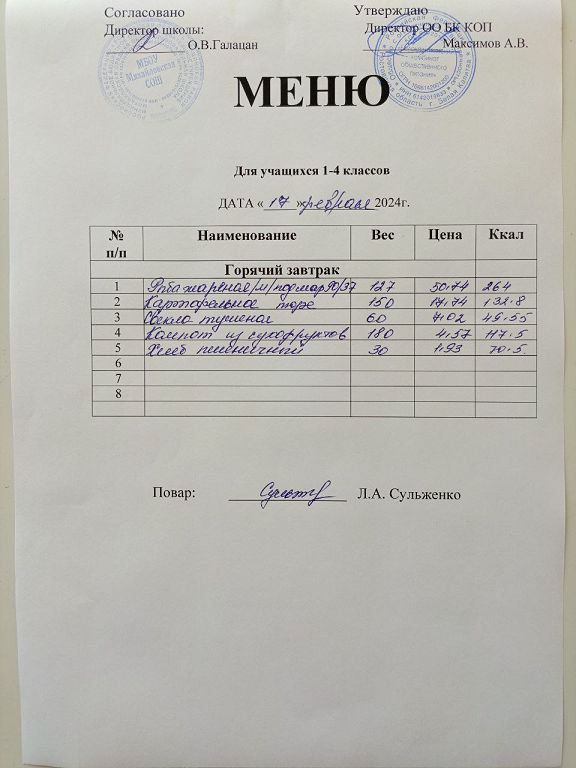 Согласовано Утверждаю
Директор школы: Директор ОО БК КОП
О.В.Галацан Максимов А.В.
МБОУ
Михайловская
СОШ
«Комбинат
общественного
питания»
МЕНЮ
Для учащихся 1-4 классов
ДАТА « 17 » февраля 2024г.
№ п/п Наименование Вес Цена Ккал
Горячий завтрак
1 Рыба жареная/м/под мар 90/37 127 50.74 264
2 Картофельное пюре 150 17.74 132.8
3 Свекла тушеная 60 7.02 49.55
4 Компот из сухофруктов 180 4.57 117.5
5 Хлеб пшеничный 30 1.93 70.5
6
7
8
Повар: Л.А. Сульженко